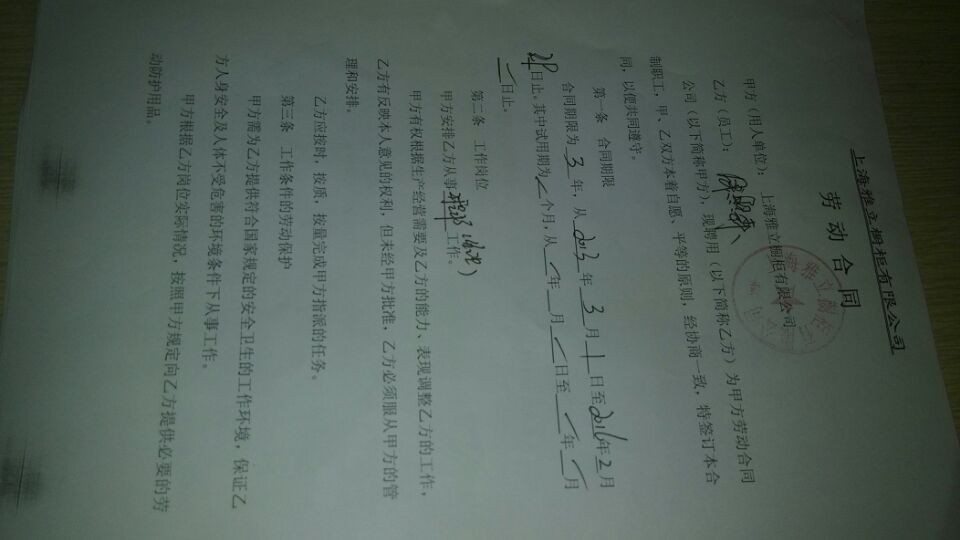 上海雅立橱柜有限公司
劳动合同
甲方（用人单位）：上海雅立橱柜有限公司
乙方（员工）：
公司（以下简称甲方），现聘用（以下简称乙方）为甲方劳动合同
制职工，甲、乙双方本着自愿、平等的原则，经协商一致，特签订本合
同，以便共同遵守。
第一条 合同期限
合同期限为 3 年，从 2013 年 3 月 1 日至 2016 年 2 月
28 日止。其中试用期为 / 个月，从 / 年 / 月 / 日至 / 年 / 月
/ 日止。
第二条 工作岗位
甲方安排乙方从事 工作。
甲方有权根据生产经营需要及乙方的能力、表现调整乙方的工作，
乙方有反映本人意见的权利，但未经甲方批准，乙方必须服从甲方的管
理和安排。
乙方应按时，按质，按量完成甲方指派的任务。
第三条 工作条件的劳动保护
甲方需为乙方提供符合国家规定的安全卫生的工作环境，保证乙
方人身安全及人体不受危害的环境条件下从事工作。
甲方根据乙方岗位实际情况，按照甲方规定向乙方提供必要的劳
动防护用品。